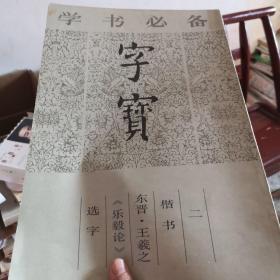 学书必备
字寶
二
楷书
东晋·王羲之
《乐毅论》
选字